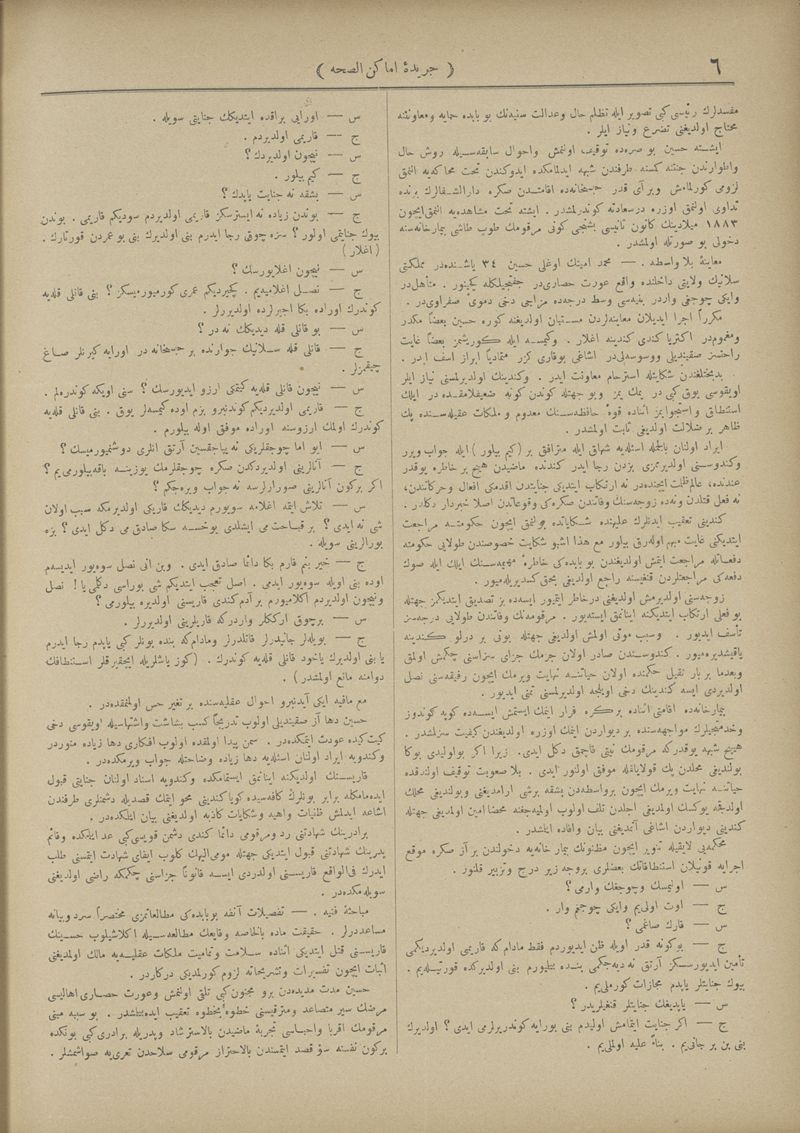 ٦
( جريدهٔ اماكن الصحه )
مفسدلرك رئيسى كبى تصوير ايله تظلم حال وعدالت سنيه‌نك بو بابده حمايه ومعاونتنه
محتاج اولديغنى تضرع ونياز ايلر .
ايشته حسين بو صره‌ده توقيف اولنمش واحوال سابقه‌سيله روش حال
واطوارندن جنته كسنه طرفندن شبهه ايدلمامكده ايدوكندن تحت محاكمه‌يه النمق
لزومى كورلمامش وبر آى قدر حبسخانه‌ده اقامتدن صكره دارالشفالرك برنده
تداوى اولنمق اوزره درسعادته كوندرلمشدر . ايشته تحت مشاهده‌يه النمق ايچون
١٨٨٣ ميلادينك كانون ثانيسى بشنجى كونى مرقومك طوب طاشى بيمارخانه‌سنه
دخولى بو صورتله اولمشدر .
معاينهٔ بلا واسطه . — محمد امينك اوغلى حسين ٣٤ ياشنده‌در مملكتى
سلانيك ولايتى داخلنده واقع عورت حصارى‌در جفتجيلكله كچينور . متأهل‌در
وايكى چوجغى واردر بنيه‌سى وسط درجه‌ده مزاجى دخى دموئ صفراوى‌در .
مكرراً اجرا ايديلان معاينه‌لردن مستبان اولديغنه كوره حسين بعضاً مكدر
ومغموم‌در اكثريا كندى كندينه اغلار . وكيمسه ايله كوريشمز بعضاً غايت
راحتسز صقنديلى ووسوسه‌لى‌در اشاغى يوقارى كزر متمادياً ابراز اسف ايدر .
بدبختلغندن شكايتله استرحام معاونت ايدر . وكندينك اولديرلمسنى نياز ايلر
اويقوسى يوق كبى‌در يمك يمز وبو جهتله كوندن كونه ضعيفلامقده‌در ايلك
استنطاق واستجوابمز اثناده قوهٔ حافظه‌سنك معدوم وملكات عقليه‌سنده پك
ظاهر بر ضلالت اولديغى ثابت اولمشدر .
ايراد اولنان بالجمله اسئله‌يه شهاق ايله مترافق بر (كيم بيلور) ايله جواب ويرر
وكندوسنى اولديرمزى بزدن رجا ايدر كندنده ماضيدن هيچ بر خاطره يوقدر
عندنده، عالم ايچنده‌در نه ارتكاب ايتديكى جنايتدن اقدمى افعال وحركاتندن،
نه فعل قتلدن ونه‌ده زوجه‌سنك وفاتندن صكره‌كى وقوعاتدن اصلا خبردار دكلدر .
كندينى تعقيب ايدنلرك عليهنده شكاياتده بولنمق ايچون حكومته مراجعت
ايتديكنى غايت مبهم اوله‌رق بيلور مع هذا اشبو شكايت خصوصندن طولايى حكومته
دفعاتله مراجعت ايتمش اولديغندن بو بابده‌كى خاطرهٔ مبهمه‌سنك ايلك ايله صوك
دفعه‌كى مراجعتلردن قنغيسنه راجع اولديغنى بحق كسديره‌ميور .
زوجه‌سنى اولديرمش اولديغنى درخاطر ايتميور ايسه‌ده بز تصديق ايتديكمز جهتله
بو فعلى ارتكاب ايتديكنه اينانمق ايسته‌يور . مرقومه‌نك وفاتندن طولايى درجه‌سز
تأسف ايديور . وسبب موتى اولمش اولديغى جهتله بونى بر درلو كندينه
ياقيشديره‌ميور . كندوسندن صادر اولان جرمك جزاى سزاسنى چكمش اولمق
وبعدما بر بار ثقيل حكمنده اولان حياتنه نهايت ويرمك ايچون رفيقه‌سنى نصل
اولديردى ايسه كندينك دخى اويلجه اولديرلمسنى تمنى ايديور .
بيمارخانه‌ده اقامتى اثناده بركره فرار ايتمك ايستمش ايسه‌ده كويه كوندوز
وخدمتجيلرك مواجهه‌سنده بر ديواردن ايتمك اوزره اولديغندن كيفيت سزلمشدر .
هيچ شبهه يوقدركه مرقومك نيتى قاچمق دكل ايدى . زيرا اكر بو اولايدى بوكا
بولنديغى محلدن پك قولايلقله موفق اولنور ايدى . بلا صعوبت توقيف اولندقده
حياتنه نهايت ويرمك ايچون بر واسطه‌دن بشقه برشى ارامديغنى وبولنديغى محلك
اولدقجه يوكسك اولمديغى اجلدن تلف اولوب اولميه‌جغنه محضا امين اولمديغى جهتله
كندينى ديواردن اشاغى آتمديغنى بيان وافاده ايلمشدر .
محكمه‌يى لايقيله تنوير ايچون مظنونك بيمارخانه‌يه دخولندن بر آز صكره موقع
اجرايه قونيلان استنطاقاتك بعضلرى بروجه زير درج وتزبير قلنور .
س — اوليمسك وچوجغك وارمى ؟
ج — اوت اولى‌يم وايكى چوجغم وار .
س — قارك صاغمى ؟
ج — بو كونه قدر اويله ظن ايديوردم فقط مادام كه قاريمى اولديرديكمى
تأمين ايديورسكز آرتق نه ديه‌جكمى بنده بيليورم بنى اولديركده قورتيله‌يم .
بيوك جنايتلر ياپدم مجازات كورملى‌يم .
س — ياپديغك جنايتلر قنغيلريدر ؟
ج — اكر جنايت ايتمامش اوليدم بنى بورايه كوندريرلرمى ايدى ؟ اولديرك
بنى بن بر جانى‌يم . بناءً عليه اولملى‌يم .
س — اورايى براقده ايتديكك جنايتى سويله .
ج — قاريمى اولديردم .
س — نيچون اولديردك ؟
ج — كيم بيلور .
س — بشقه نه جنايت ياپدك ؟
ج — بوندن زياده نه ايسترسكز قاريمى اولديردم سوديكم قاريمى . بوندن
بيوك جنايتمى اولور ؟ سزه چوق رجا ايدرم بنى اولديرك بنى بو عمردن قورتارك .
( اغلار )
س — نيچون اغلايورسك ؟
ج — نصل اغلاميه‌يم . كچيرديكم عمرى كورميورميسكز ؟ بنى قانلى قله‌يه
كوندرك اوراده بكا اجيرلرده اولديررلر .
س — بو قانلى قله ديديكك نه در ؟
ج — قانلى قله سلانيك جوارنده بر حبسخانه در اورايه كيرنلر صاغ
چيقمزلر .
س — نيچون قانلى قله‌يه كيتمكى ارزو ايديورسك ؟ سنى اويكه كوندره‌لم .
ج — قاريمى اولديرديكم كوندنبرو بزم اوده كيمسه‌لر يوق . بنى قانلى قله‌يه
كوندرك اولمك ارزوسنه اوراده موفق اوله بيلورم .
س — ايو اما چوجقلريكى نه ياپه‌جقسين آرتق انلرى دوشنميورميسك ؟
ج — آنالرينى اولديردكدن صكره چوجقلرمك يوزينه باقه‌بيلورمى‌يم ؟
اكر بر كون آنالرينى صورارلرسه نه جواب ويره‌جكم ؟
س — تلاش ايتمه اغلامه سويورم ديديكك قاريكى اولديرمكه سبب اولان
شى نه ايدى ؟ بر قباحت مى ايشلدى يوخسه سكا صادق مى دكل ايدى ؟ بزه
بورالرينى سويله .
ج — خير بنم قارم بكا دائما صادق ايدى . وبن انى نصل سوه‌يور ايديسه‌م
اوده بنى اويله سوه‌يور ايدمى . اصل تعجب ايتديكم شى بوراسى دكلمى يا ! نصل
ونيچون اولديردم اكلاميورم بر آدم كندى قاريسنى اولديره بيلورمى ؟
س — برچوق ارككلر واردركه قاريلرينى اولديررلر .
ج — بويله‌لر جانيدرلر قاتلدرلر ومادام كه بنده بونلر كبى ياپدم رجا ايدرم
يا بنى اولديرك ياخود قانلى قله‌يه كوندرك . ( كوز ياشلريله ايچقيرقلر استنطاقك
دوامنه مانع اولمشدر ) .
مع مافيه ايكى آيدنبرو احوال عقليه‌سنده بر تغير حس اولنمقده‌در .
حسين دها آز صقينديلى اولوب تدريجاً كسب بشاشت واشتهاسيله اويقوسى دخى
كيت كيده عودت ايتمكده‌در . سمن پيدا اولمقده اولوب افكارى دها زياده متوردر
وكندويه ايراد اولنان اسئله‌يه دها زياده وضاحتله جواب ويرمكده‌در .
قاريسنك اولديكنه اينانمق ايستمامكده وكندويه اسناد اولنان جنايتى قبول
ايده‌مامكله برابر بونلرك كافه‌سيده كويا كندينى محو ايتمك قصديله دشمنلرى طرفندن
اشاعه ايدلمش ظنيات واهيه وشكايات كاذبه اولديغنى بيان ايلمكده‌در .
برادرينك شهادتنى رد ومرقومى دائما كندى دشمن قويسى كبى عد ايلمكده وقائم
پدرينك شهادتنى قبول ايتديكى جهتله مومى اليهك كلوب ايفاى شهادت ايتمسنى طلب
ايدرك فى‌الواقع قاريسنى اولدردى ايسه قانوناً جزاسنى چكمكه راضى اولديغنى
سويلمكده‌در .
مباحثهٔ فنيه . — تفصيلات آنفه بو بابده‌كى مطالعاتمزى مختصراً سرد وبيانه
مساعددرلر . حقيقت ماده بالخاصه وقايعك مطالعه‌سيله اكلاشيلوب حسينك
قاريسنى قتل ايتديكى اثناده سلامت وتماميت ملكات عقليه‌يه مالك اولمديغنى
اثبات ايچون تفسيرات وتشريحاته لزوم كورلمديكى دركاردر .
حسين مدت مديده‌دن برو مجنون كبى تلقى اولنمش وعورت حصارى اهاليسى
مرضك سير متصاعد ومترقيسنى خطوه بخطوه تعقيب ايده‌بلمشدر . بو سببه مبنى
مرقومك اقربا واحباسى تجربهٔ ماضيدن بالاسترشاد وپدريله برادرى كبى بونكده
بركون نفسنه سؤ قصد ايتمسندن بالاحتراز مرقومى سلاحدن تعرى‌يه صواشمشلر .